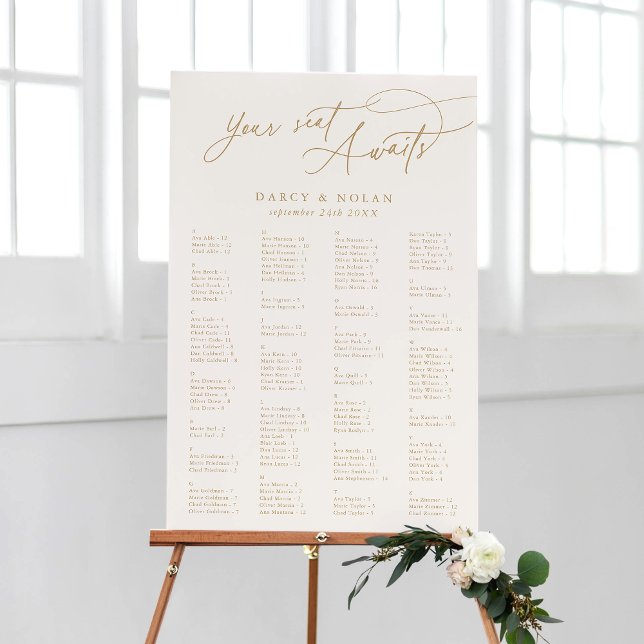 Your seat
Awaits
DARCY & NOLAN
september 24th 20XX
A
Ava Able - 12
Marie Able - 12
Chad Able - 12
B
Ava Brock - 1
Marie Brock - 2
Chad Brock - 1
Oliver Brock - 1
Ana Brock - 1
C
Ava Cade - 4
Marie Cade - 4
Chad Cade - 11
Oliver Cade - 11
Ana Caldwell - 8
Dan Caldwell - 8
Holly Caldwell - 8
D
Ava Dawson - 6
Marie Dawson - 9
Chad Drew - 8
Oliver Drew - 8
Ana Drew - 8
E
Marie Earl - 2
Chad Earl - 3
F
Ava Friedman - 3
Marie Friedman - 3
Chad Friedman - 3
G
Ava Goldman - 7
Marie Goldman - 7
Chad Goldman - 7
Oliver Goldman - 7
H
Ava Hanson - 10
Marie Hanson - 10
Chad Hanson - 1
Oliver Hanson - 1
Ana Hellman - 4
Dan Hellman - 4
Holly Hudson - 7
I
Ava Ingram - 5
Marie Ingram - 5
J
Ava Jordan - 12
Marie Jordan - 12
K
Ava Kern - 10
Marie Kern - 10
Holly Kern - 10
Ryan Kern - 10
Chad Kramer - 1
Oliver Kramer - 1
L
Ava Lindsay - 8
Marie Lindsay - 8
Chad Lindsay - 10
Oliver Lindsay - 10
Ana Loeb - 1
Blair Loeb - 1
Dan Lucas - 12
Ana Lucas - 12
Ryan Lucas - 12
M
Ava Morris - 2
Marie Morris - 2
Chad Morris - 2
Ana Montana - 12
N
Ava Nason - 4
Marie Nason - 4
Chad Nelson - 9
Oliver Nelson - 9
Ana Nelson - 9
Dan Nelson - 9
Holly Norris - 16
Ryan Norris - 16
O
Ava Oswald - 3
Marie Oswald - 3
P
Ava Park - 9
Marie Park - 9
Chad Pirraim - 5
Oliver Pirraim - 5
Q
Ava Quill - 5
Marie Quill - 5
R
Ava Rose - 2
Marie Rose - 2
Chad Rose - 2
Holly Rose - 2
Ryan Roslyn - 7
S
Ava Smith - 11
Marie Smith - 11
Chad Smith - 11
Oliver Smith - 11
Ana Stephenson - 14
T
Ava Taylor - 5
Marie Taylor - 5
Chad Taylor - 5
Karen Taylor - 5
Dan Taylor - 5
Ryan Taylor - 5
Oliver Taylor - 5
Dan Thomas - 15
U
Ava Ulman - 5
Marie Ulman - 5
V
Ava Vance - 11
Marie Vance - 11
Dan Vanderwall - 16
W
Ava Wilson - 4
Marie Wilson - 4
Chad Wilson - 4
Oliver Wilson - 5
Ana Wilson - 5
Dan Wilson - 5
Holly Wilson - 5
Ryan Wilson - 5
X
Ava Xander - 10
Marie Xander - 10
Y
Ava York - 4
Marie York - 4
Chad York - 4
Oliver York - 4
Ana York - 4
Dan York - 4
Z
Ava Zimmer - 12
Marie Zimmer - 12
Chad Zimmer - 12